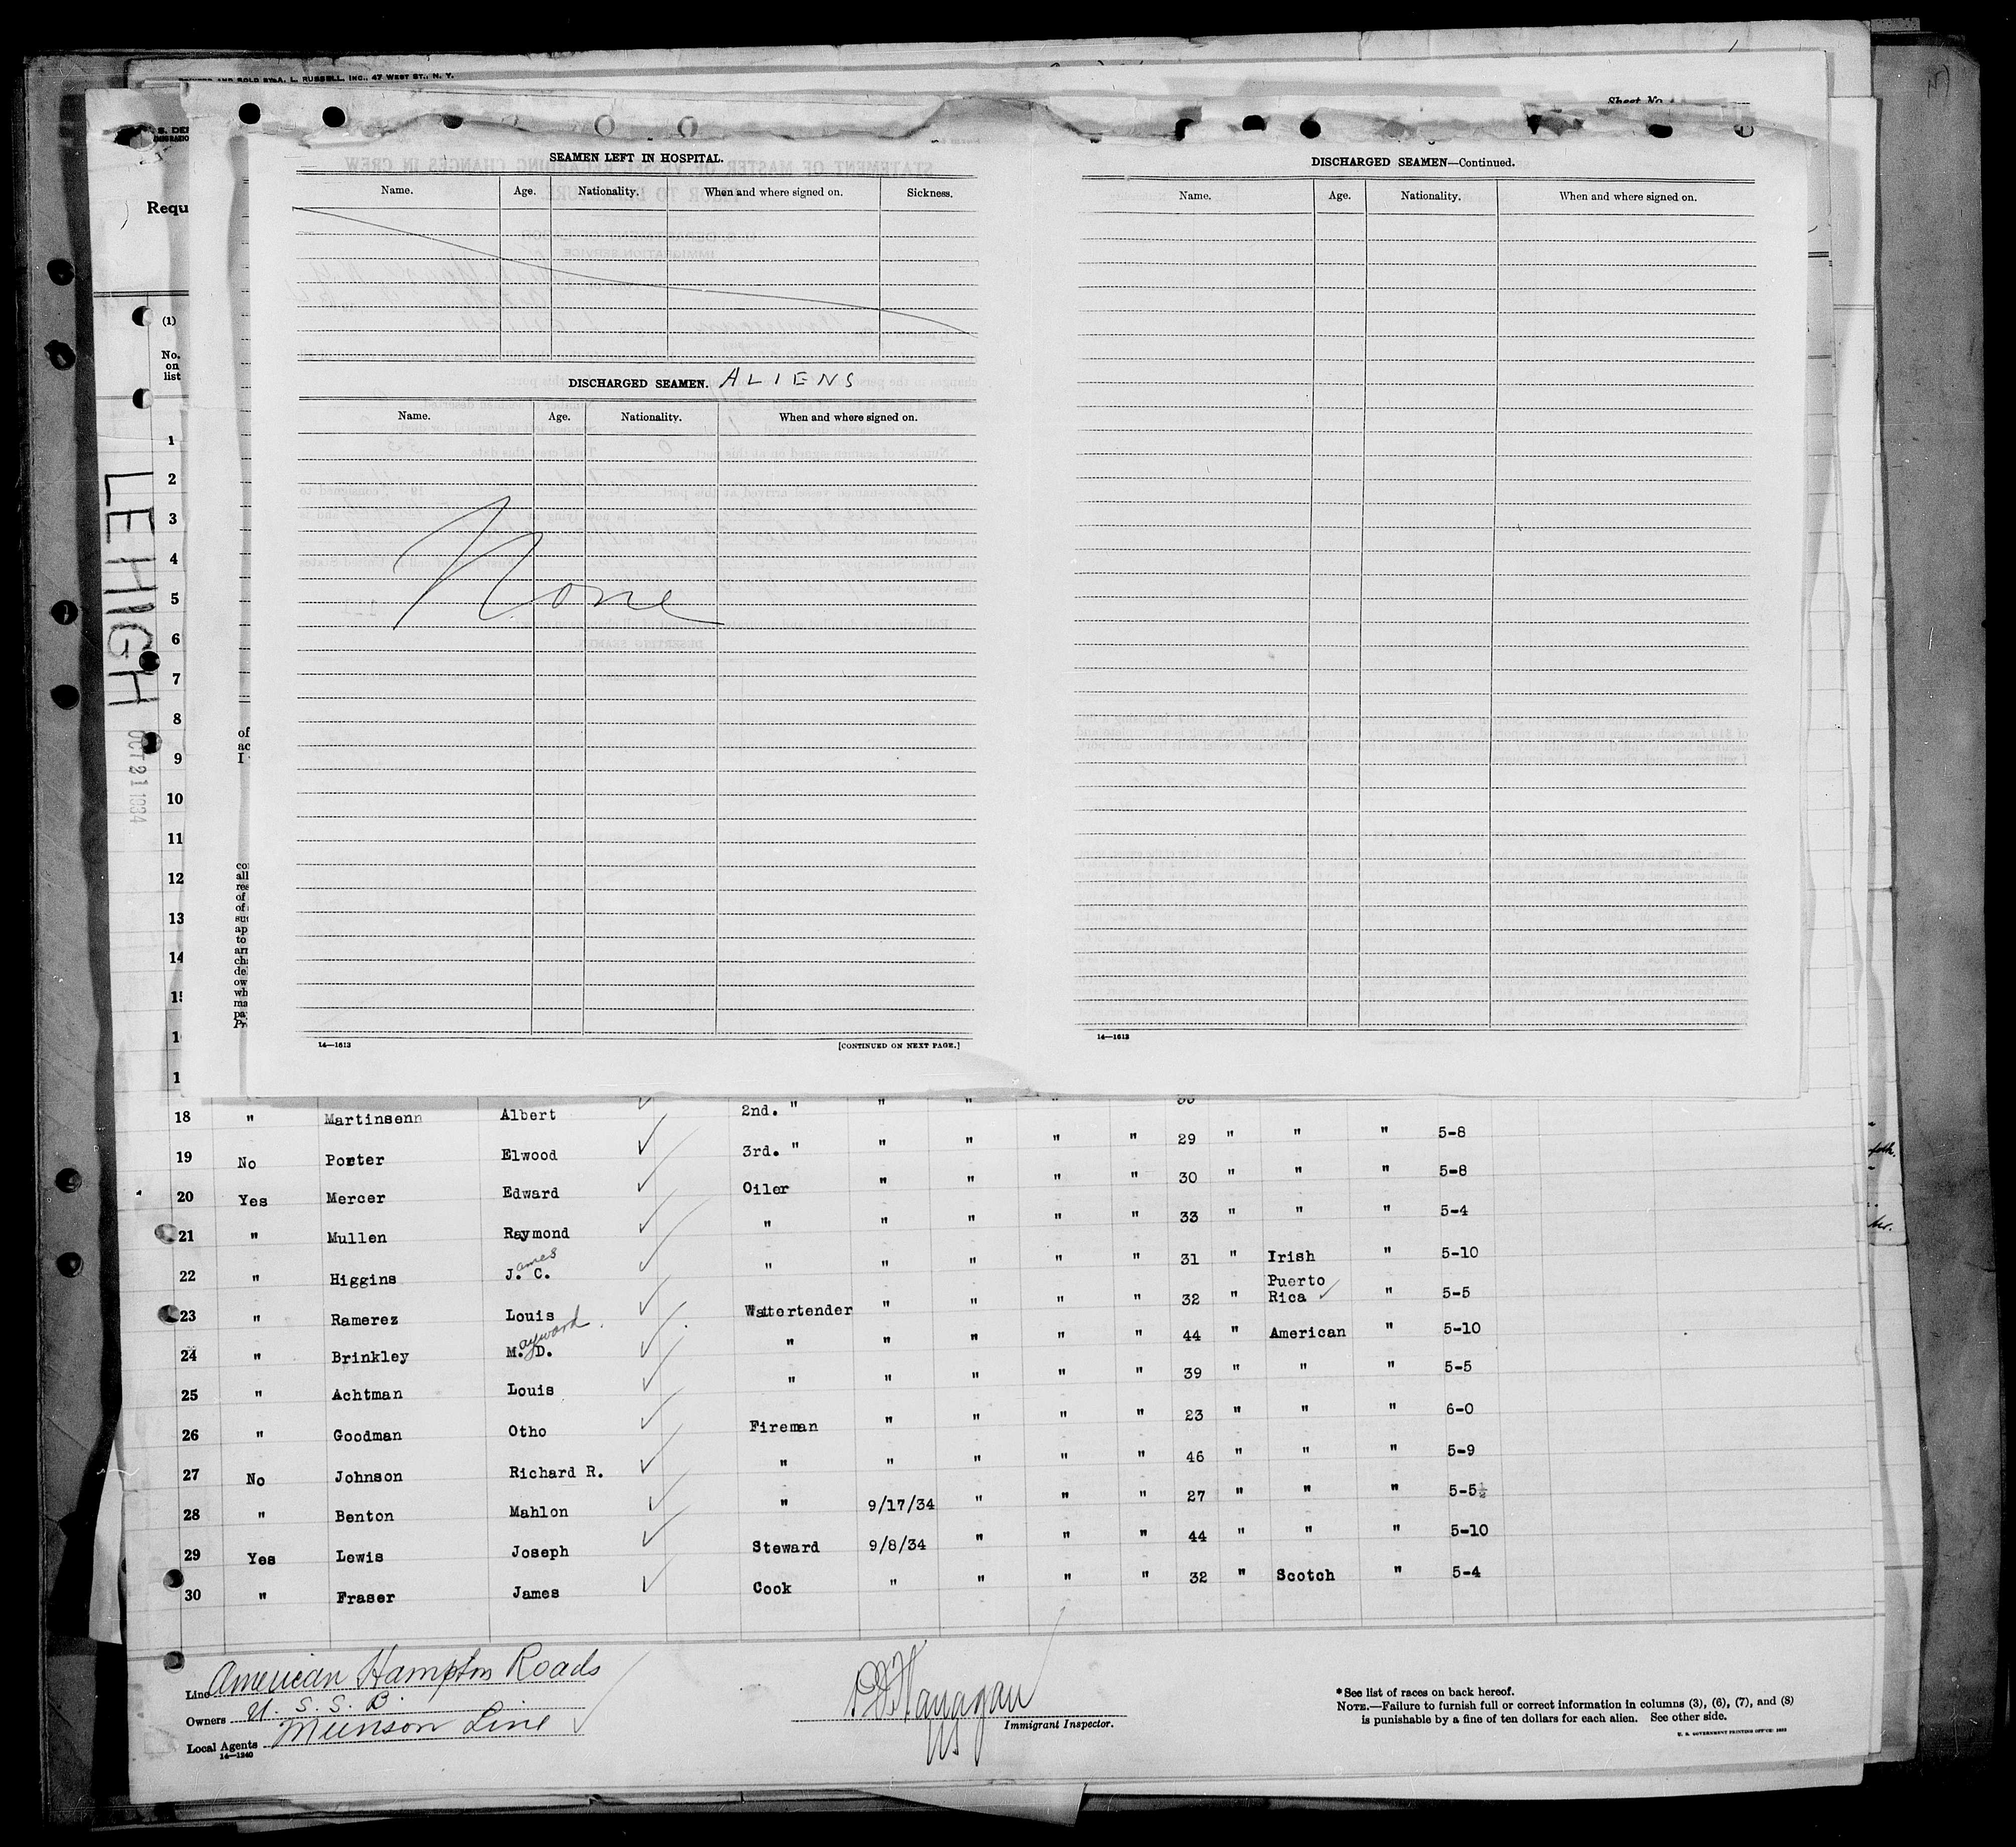 AND SOLD BY A. L. RUSSELL, INC., 47 WEST ST., N. Y.
Sheet No.
S. DEP
Requ
(1)
No.
on
list
LEHIGH
OCT 21 1934
SEAMEN LEFT IN HOSPITAL.
Name. Age. Nationality. When and where signed on. Sickness.
DISCHARGED SEAMEN. ALIENS
Name. Age. Nationality. When and where signed on.
None
14—1613 [CONTINUED ON NEXT PAGE.]
DISCHARGED SEAMEN—Continued.
Name. Age. Nationality. When and where signed on.
14—1613
1
2
3
4
5
6
7
8
9
10
11
12
13
14
15
1
1
of
ac
I
co
all
res
of
of
su
ap
to
an
ch
de
ow
wh
ma
pa
Pr
18 " Martinsenn Albert 2nd. " " " "
19 No Porter Elwood 3rd. " " " " " 29 " " " 5-8
20 Yes Mercer Edward Oiler " " " " 30 " " " 5-8
21 " Mullen Raymond " " " " " 33 " " " 5-4
22 " Higgins J.ames C. " " " " " 31 " Irish " 5-10
23 " Ramerez Louis Wattertender " " " " 32 " Puerto Rica " 5-5
24 " Brinkley M.ayward D. " " " " " 44 " American " 5-10
25 " Achtman Louis " " " " " 39 " " " 5-5
26 " Goodman Otho Fireman " " " " 23 " " " 6-0
27 No Johnson Richard R. " " " " " 46 " " " 5-9
28 " Benton Mahlon " 9/17/34 " " " 27 " " " 5-5½
29 Yes Lewis Joseph Steward 9/8/34 " " " 44 " " " 5-10
30 " Fraser James Cook " " " " 32 " Scotch " 5-4
Line American Hampton Roads
Owners U. S. S. B.
Local Agents Munson Line
14—1240
Flanagan
Immigrant Inspector.
* See list of races on back hereof.
NOTE.—Failure to furnish full or correct information in columns (3), (6), (7), and (8)
is punishable by a fine of ten dollars for each alien. See other side.
U. S. GOVERNMENT PRINTING OFFICE